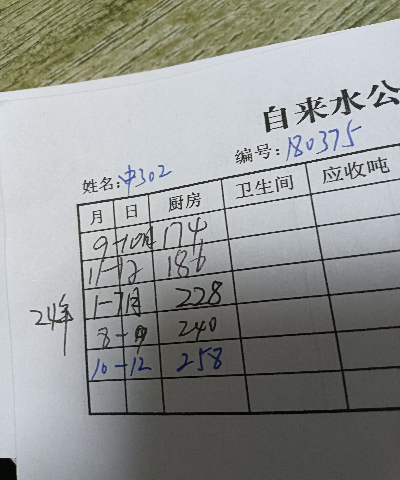 自来水公
编号:180375
姓名:中302
月 日 厨房 卫生间 应收吨
9-10月 174
11-12 186
24年 1-7月 228
8-9 240
10-12 258